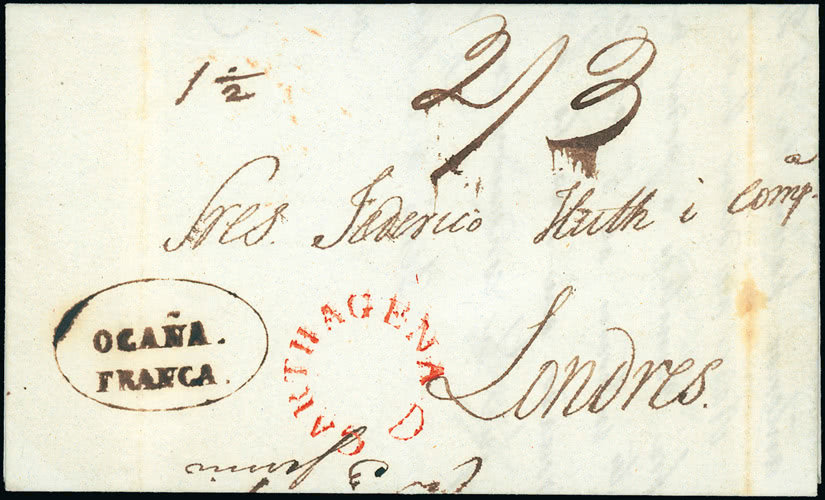 1 ½ 2/3
Sres. Federico Huth i Compª.
Londres.
OCAÑA.
FRANCA.
CARTHAGENA